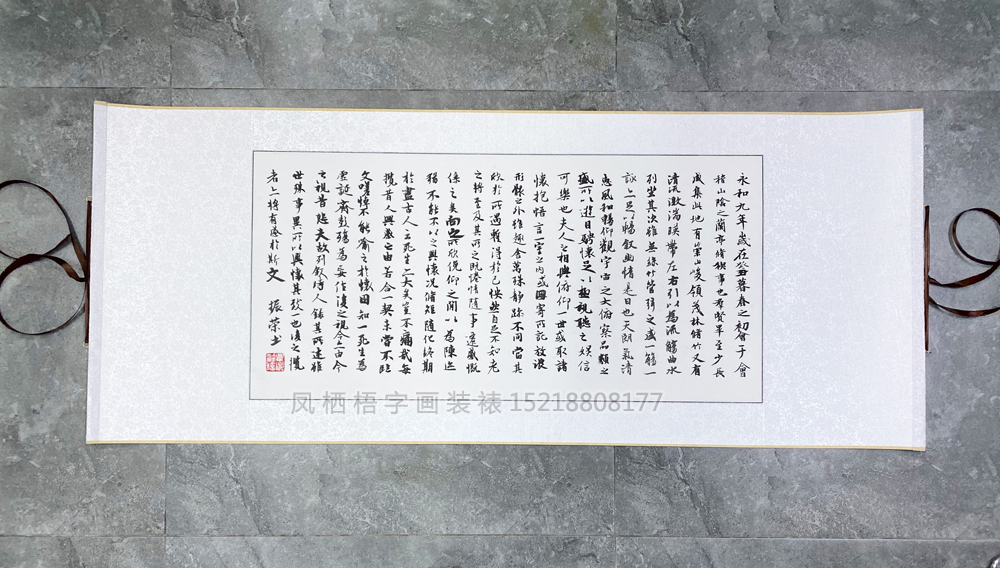 永和九年歲在癸丑暮春之初會于會
稽山陰之蘭亭脩禊事也羣賢畢至少長
咸集此地有崇山峻領茂林脩竹又有
清流激湍暎帶左右引以為流觴曲水
列坐其次雖無絲竹管絃之盛一觴一
詠亦足以暢敘幽情是日也天朗氣清
惠風和暢仰觀宇宙之大俯察品類之
盛所以遊目騁懷足以極視聽之娛信
可樂也夫人之相與俯仰一世或取諸
懷抱悟言一室之內或因寄所託放浪
形骸之外雖趣舍萬殊靜躁不同當其
欣於所遇蹔得於己怏然自足不知老
之將至及其所之既惓情隨事遷感慨
係之矣向之所欣俛仰之間以為陳迹
猶不能不以之興懷況脩短隨化終期
於盡古人云死生亦大矣豈不痛哉每
攬昔人興感之由若合一契未嘗不臨
文嗟悼不能喻之於懷固知一死生為
虛誕齊彭殤為妄作後之視今亦由今
之視昔悲夫故列敘時人錄其所述雖
世殊事異所以興懷其致一也後之攬
者亦將有感於斯文 振榮书
凤栖梧字画装裱 15218808177